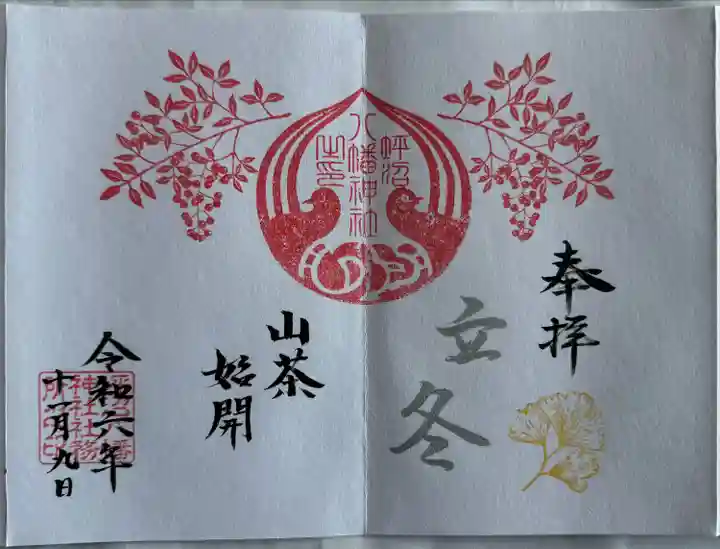 奉拝
立冬
蛭沼
八幡神社
之印
山茶
始開
令和六年
十一月九日